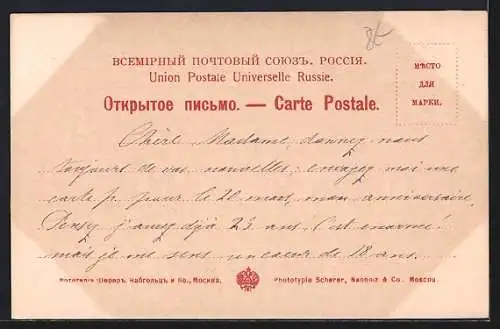 ВСЕМІРНЫЙ ПОЧТОВЫЙ СОЮЗЪ. РОССІЯ.
Union Postale Universelle Russie.
Открытое письмо. — Carte Postale.
МѢСТО
ДЛЯ
МАРКИ.
Chère Madame, donnez nous
toujours de vos nouvelles; envoyez moi une
carte p. pour le 20 mars, mon anniversaire.
Pensez j'aurez déjà 23 ans. C'est énorme!
mais je me sens un cœur de 18 ans.
Фототипія Шереръ, Набгольцъ и Ко., Москва.
Phototypie Scherer, Nabholz & Co. Moscou.